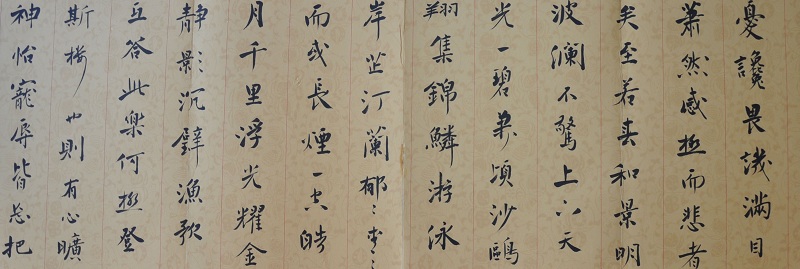 憂讒畏譏滿目
蕭然感極而悲者
矣至若春和景明
波瀾不驚上下天
光一碧萬頃沙鷗
翔集錦鱗游泳
岸芷汀蘭郁〻青〻
而或長煙一空皓
月千里浮光耀金
静影沉璧漁歌
互答此樂何極登
斯樓也則有心曠
神怡寵辱皆忘把